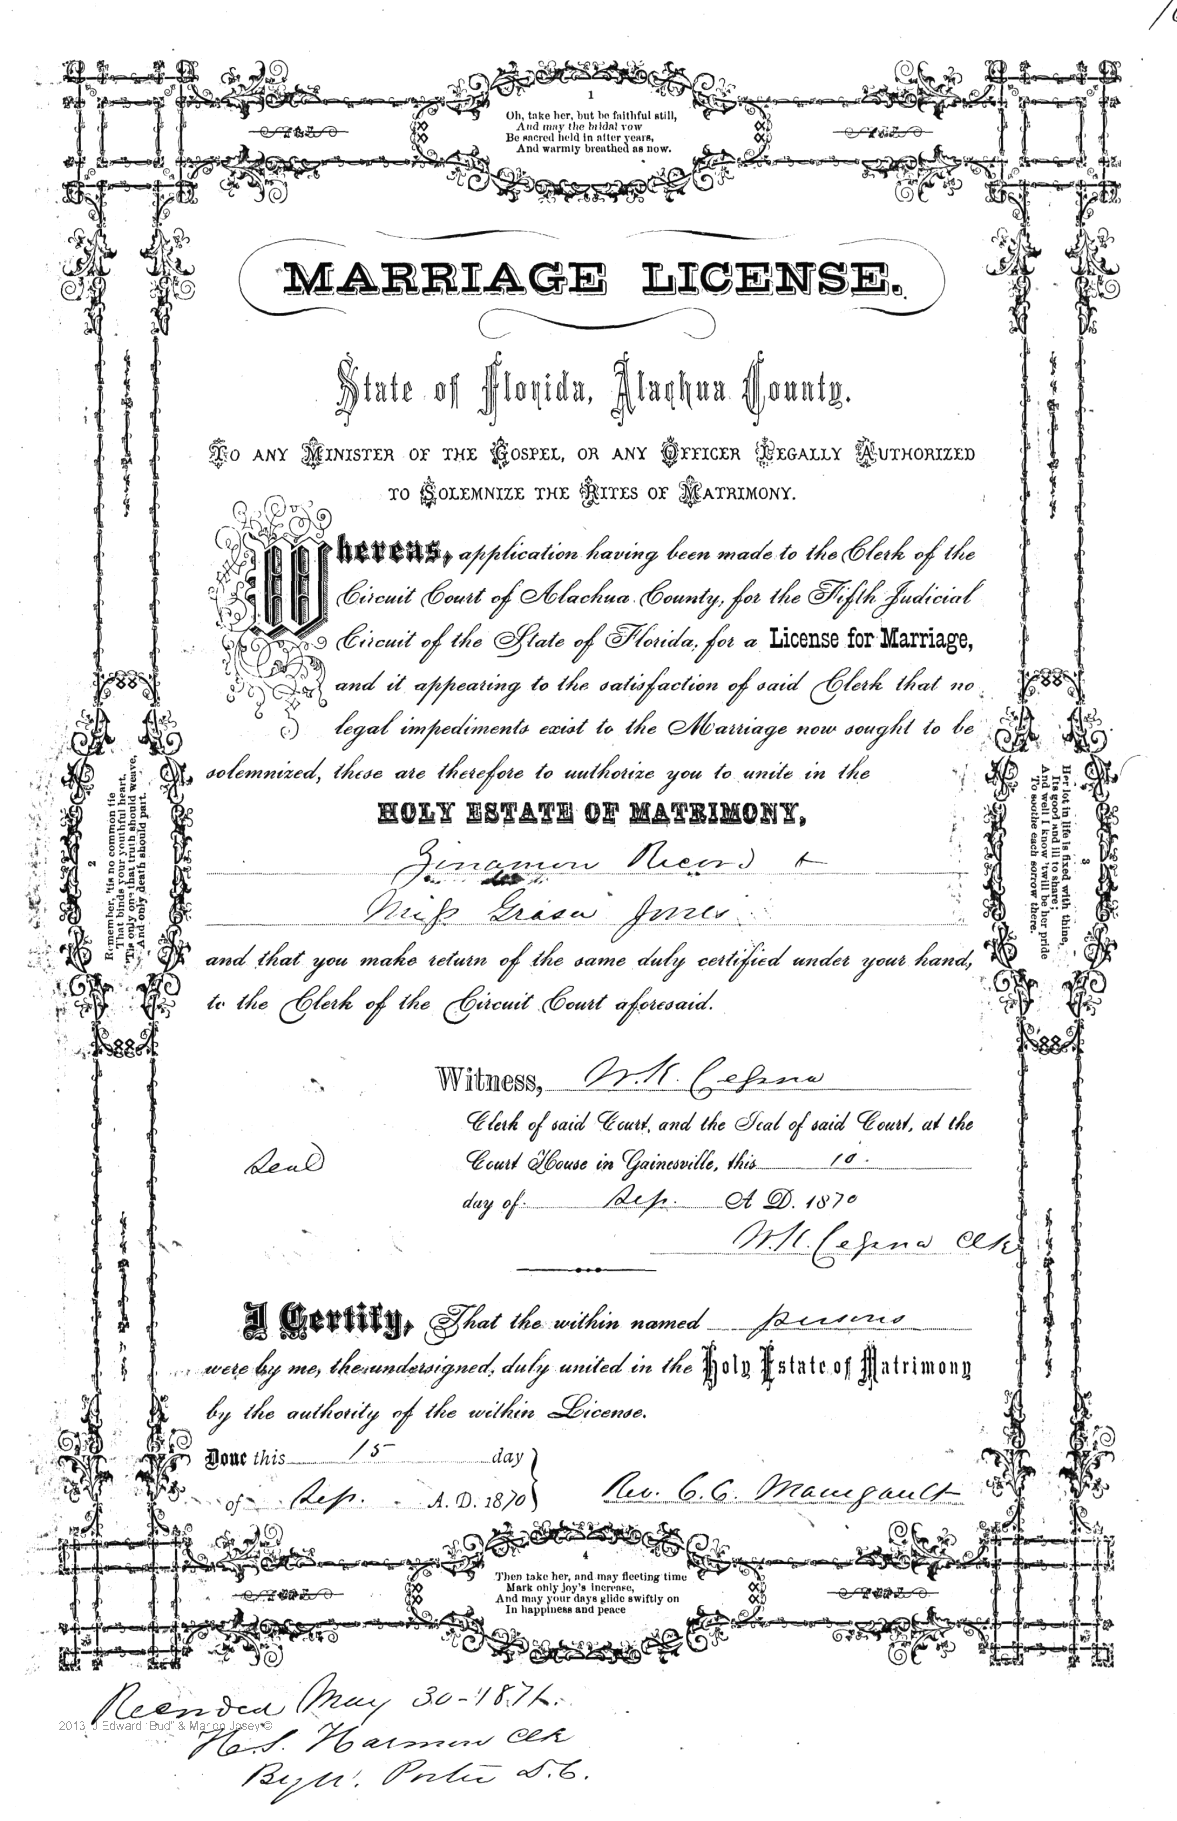 1
Oh, take her, but be faithful still,
And may the bridal vow
Be sacred held in after years,
And warmly breathed as now.
MARRIAGE LICENSE.
State of Florida, Alachua County.
TO ANY MINISTER OF THE GOSPEL, OR ANY OFFICER LEGALLY AUTHORIZED
TO SOLEMNIZE THE RITES OF MATRIMONY.
Whereas, application having been made to the Clerk of the
Circuit Court of Alachua County, for the Fifth Judicial
Circuit of the State of Florida, for a License for Marriage,
and it appearing to the satisfaction of said Clerk that no
legal impediments exist to the Marriage now sought to be
solemnized, these are therefore to authorize you to unite in the
HOLY ESTATE OF MATRIMONY,
Zinamon Record +
Miss Jones
and that you make return of the same duly certified under your hand,
to the Clerk of the Circuit Court aforesaid.
Witness, W. K. Cessna
Clerk of said Court, and the Seal of said Court, at the
Seal
Court House in Gainesville, this 10.
day of Sep. A D. 1870
W. K. Cessna Clk
I Certify, That the within named persons
were by me, the undersigned, duly united in the Holy Estate of Matrimony
by the authority of the within License.
Done this 15 day
of Sep. A. D. 1870
Rev. C. C. Manigault
2
Remember, 'tis no common tie
That binds your youthful heart,
'Tis only one that truth should weave,
And only death should part.
3
Her lot in life is fixed with thine,
Its good and ill to share;
And well I know 'twill be her pride
To soothe each sorrow there.
4
Then take her, and may fleeting time
Mark only joy's increase,
And may your days glide swiftly on
In happiness and peace
Recorded May 30-1871.
2013 J Edward "Bud" & Marion Josey ©
H. S. Harmon Clk
By W. Porter D. C.